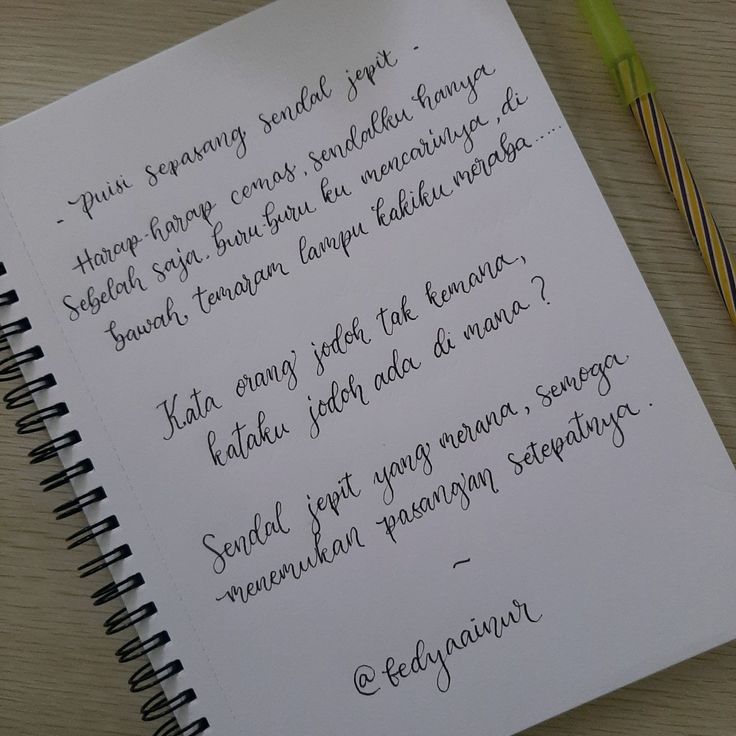 - Puisi sepasang sendal jepit -
Harap-harap cemas, sendalku hanya
Sebelah saja. buru-buru ku mencarinya, di
bawah temaram lampu kakiku meraba.....
Kata orang jodoh tak kemana,
kataku jodoh ada di mana?
Sendal jepit yang merana, semoga
menemukan pasangan setepatnya.
~
@bedyaainur